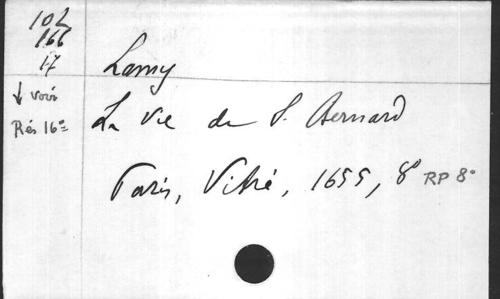 102
166
17
Lamy
↓ voir
Rés 16°
La vie de S. Bernard
Paris, Vitré, 1655, 8° RP 8°